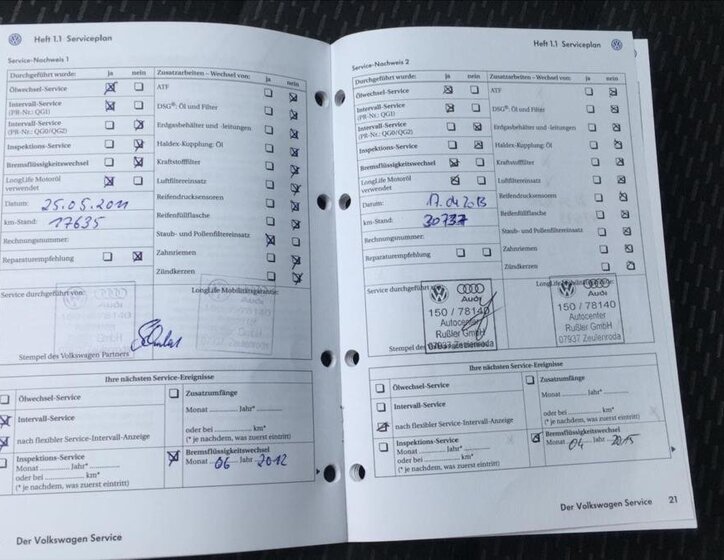 Heft 1.1 Serviceplan
Service-Nachweis 1
Durchgeführt wurde: ja nein Zusatzarbeiten – Wechsel von: ja nein
Ölwechsel-Service ATF
Intervall-Service
(PR-Nr.: QG1) DSG®: Öl und Filter
Intervall-Service
(PR-Nr.: QG0/QG2) Erdgasbehälter und -leitungen
Inspektions-Service Haldex-Kupplung: Öl
Bremsflüssigkeitswechsel Kraftstofffilter
LongLife Motoröl
verwendet Luftfiltereinsatz
Datum: 25.05.2011 Reifendrucksensoren
km-Stand: 17635 Reifenfüllflasche
Rechnungsnummer: Staub- und Pollenfiltereinsatz
Reparaturempfehlung Zahnriemen
Zündkerzen
Service durchgeführt von: LongLife Mobilitätsgarantie:
Stempel des Volkswagen Partners
Ihre nächsten Service-Ereignisse
Ölwechsel-Service Zusatzumfänge
Monat Jahr*
Intervall-Service
oder bei km*
nach flexibler Service-Intervall-Anzeige (* je nachdem, was zuerst eintritt)
Inspektions-Service Bremsflüssigkeitswechsel
Monat Jahr* Monat 06 Jahr 2012
oder bei km*
(* je nachdem, was zuerst eintritt)
Der Volkswagen Service
Heft 1.1 Serviceplan
Service-Nachweis 2
Durchgeführt wurde: ja nein Zusatzarbeiten – Wechsel von: ja nein
Ölwechsel-Service ATF
Intervall-Service
(PR-Nr.: QG1) DSG®: Öl und Filter
Intervall-Service
(PR-Nr.: QG0/QG2) Erdgasbehälter und -leitungen
Inspektions-Service Haldex-Kupplung: Öl
Bremsflüssigkeitswechsel Kraftstofffilter
LongLife Motoröl
verwendet Luftfiltereinsatz
Datum: 17.04.2013 Reifendrucksensoren
km-Stand: 30737 Reifenfüllflasche
Rechnungsnummer: Staub- und Pollenfiltereinsatz
Reparaturempfehlung Zahnriemen
Zündkerzen
Service durchgeführt LongLife
Audi Audi
150 / 78140 150 / 78140
Autocenter Autocenter
Rußler GmbH Rußler GmbH
07937 Zeulenroda 07937 Zeulenroda
Stempel des
Ihre nächsten Service-Ereignisse
Ölwechsel-Service Zusatzumfänge
Monat Jahr*
Intervall-Service
oder bei km*
nach flexibler Service-Intervall-Anzeige (* je nachdem, was zuerst eintritt)
Inspektions-Service Bremsflüssigkeitswechsel
Monat Jahr* Monat 04 Jahr 2015
oder bei km*
(* je nachdem, was zuerst eintritt)
Der Volkswagen Service 21